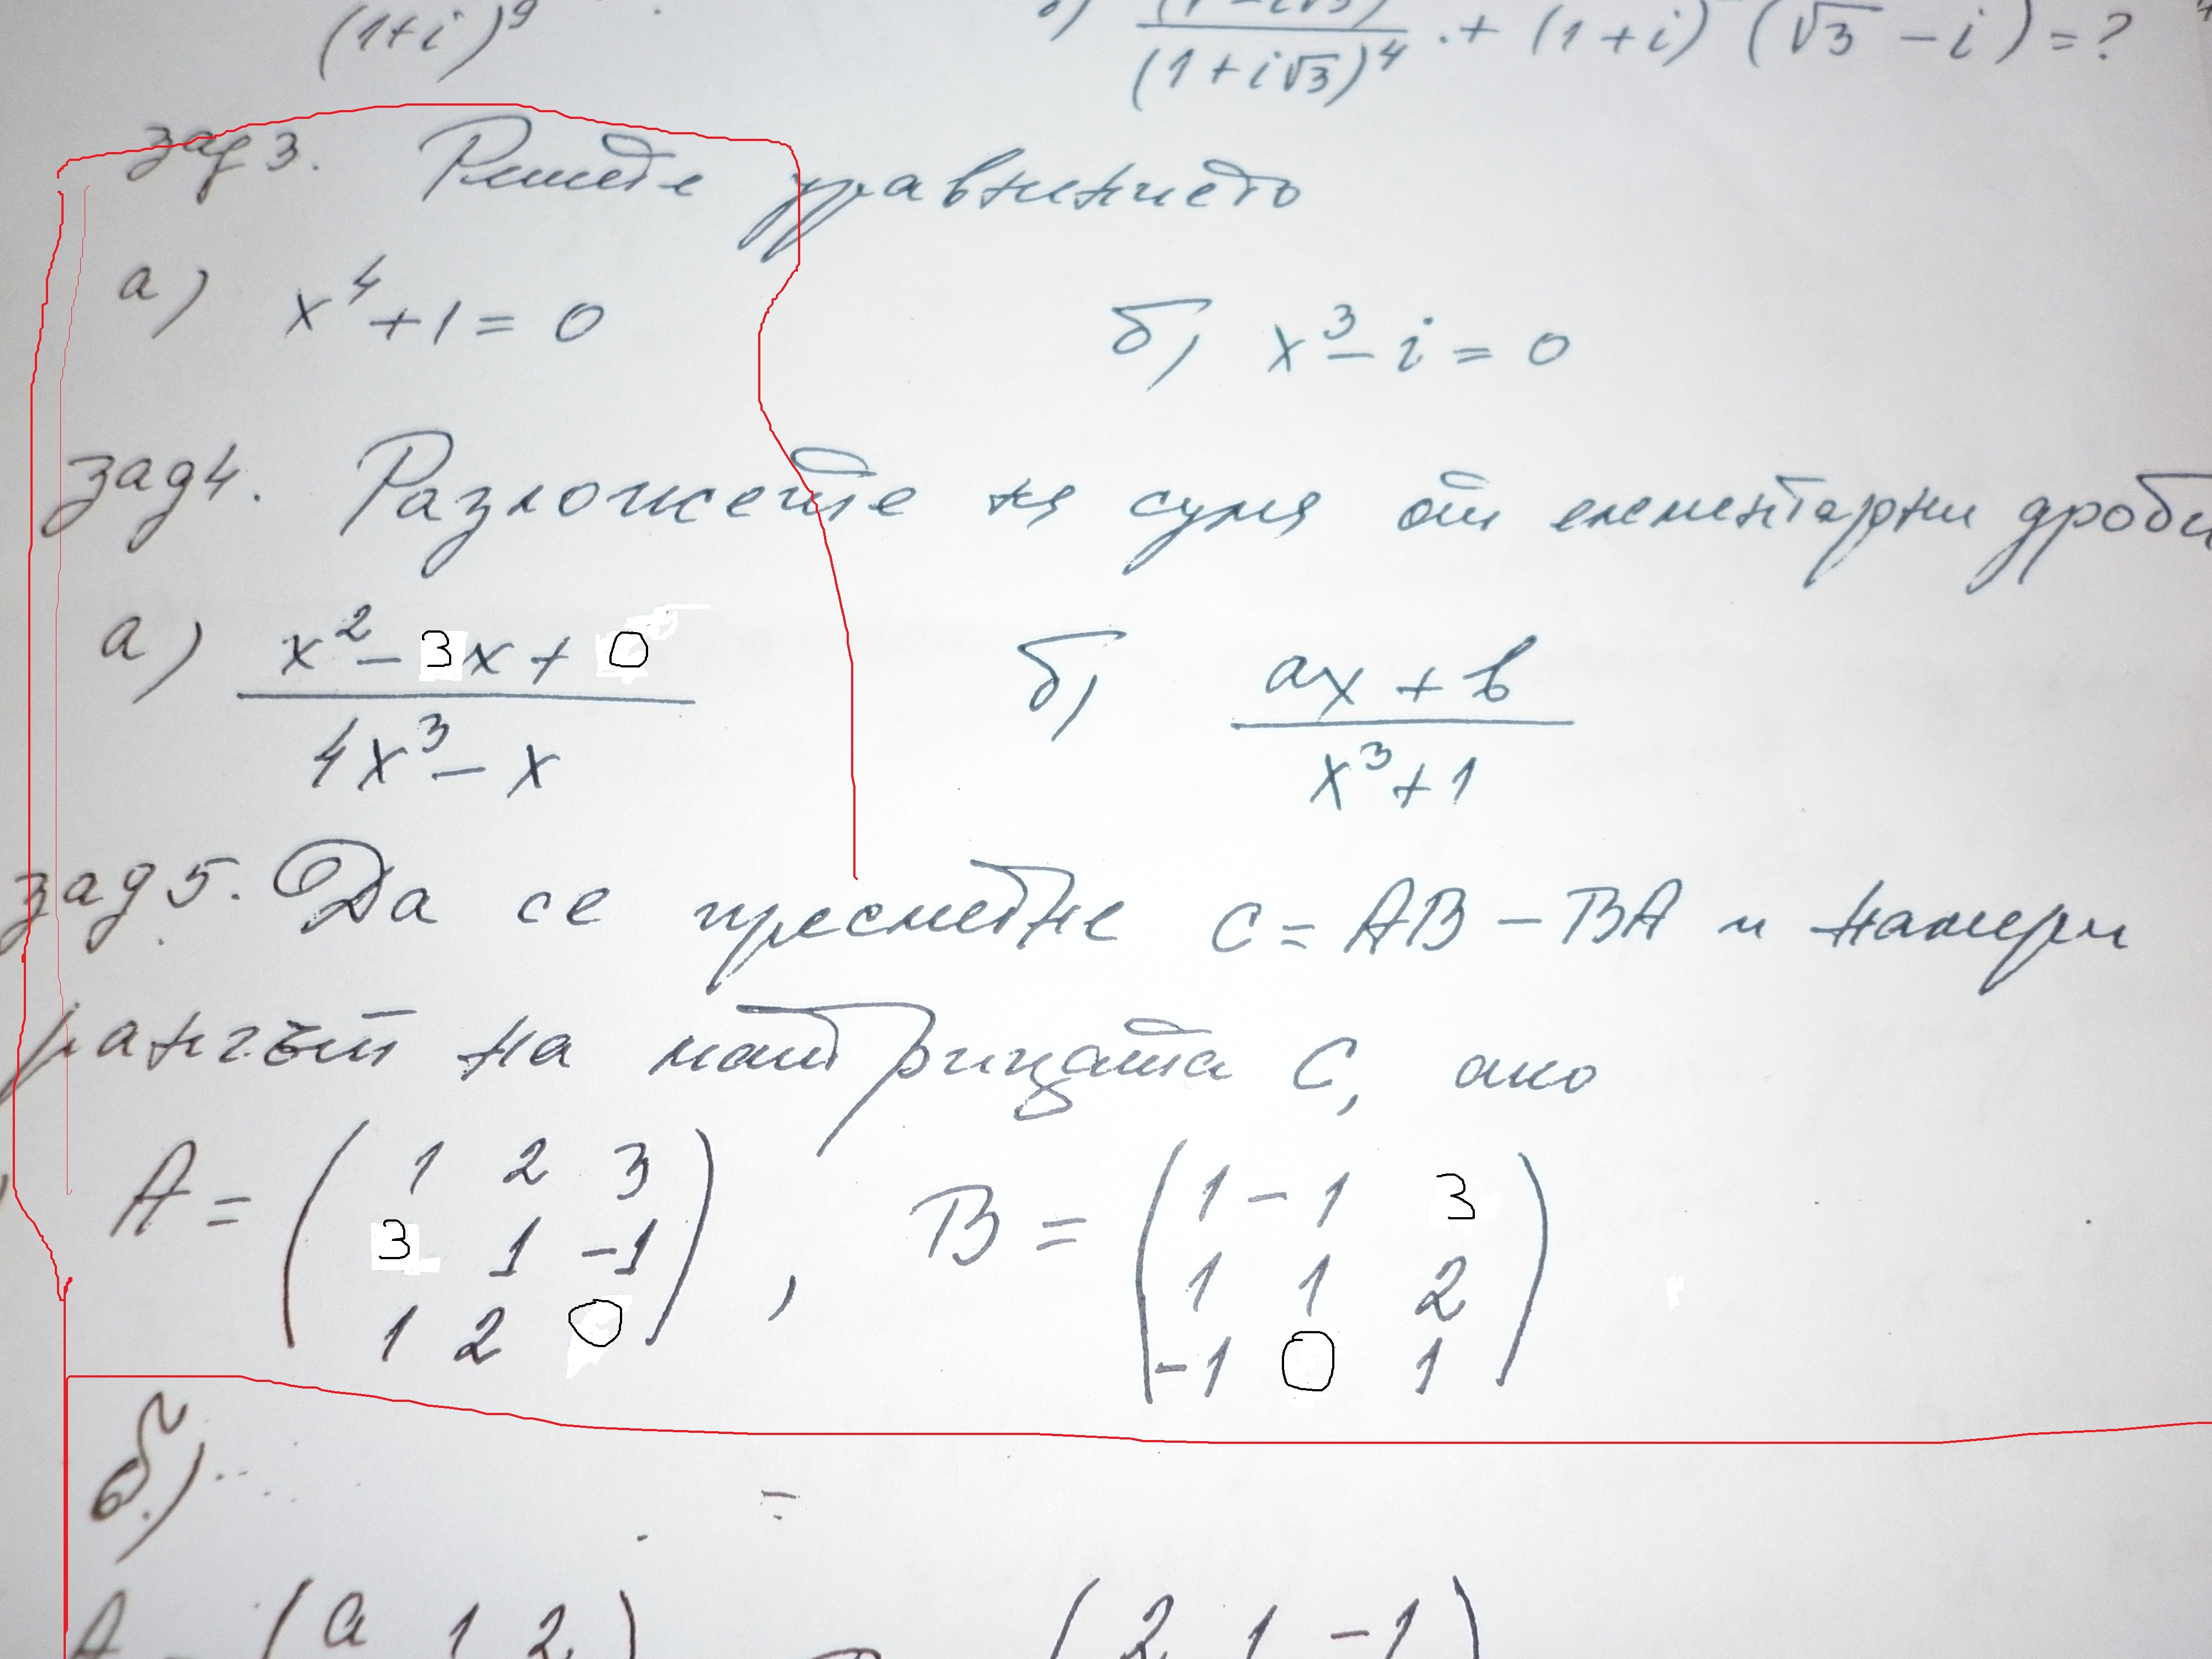 (1+i)⁹ б) (1-i√3) / (1+i√3)⁴ + (1+i) (√3-i)=?
зад 3. Решете уравнението
а) x⁴+1=0 б) x³-i=0
зад 4. Разложете на сума от елементарни дроби
а) x²-3x+0 б) ax+b
4x³-x x³+1
зад 5. Да се пресметне C=AB-BA и намери
рангът на матрицата C, ако
A = ( 1 2 3 B = ( 1 -1 3
3 1 -1 ) , 1 1 2 )
1 2 0 -1 0 1
б)
A ( a 1 2 ) ( 2 1 -1 )